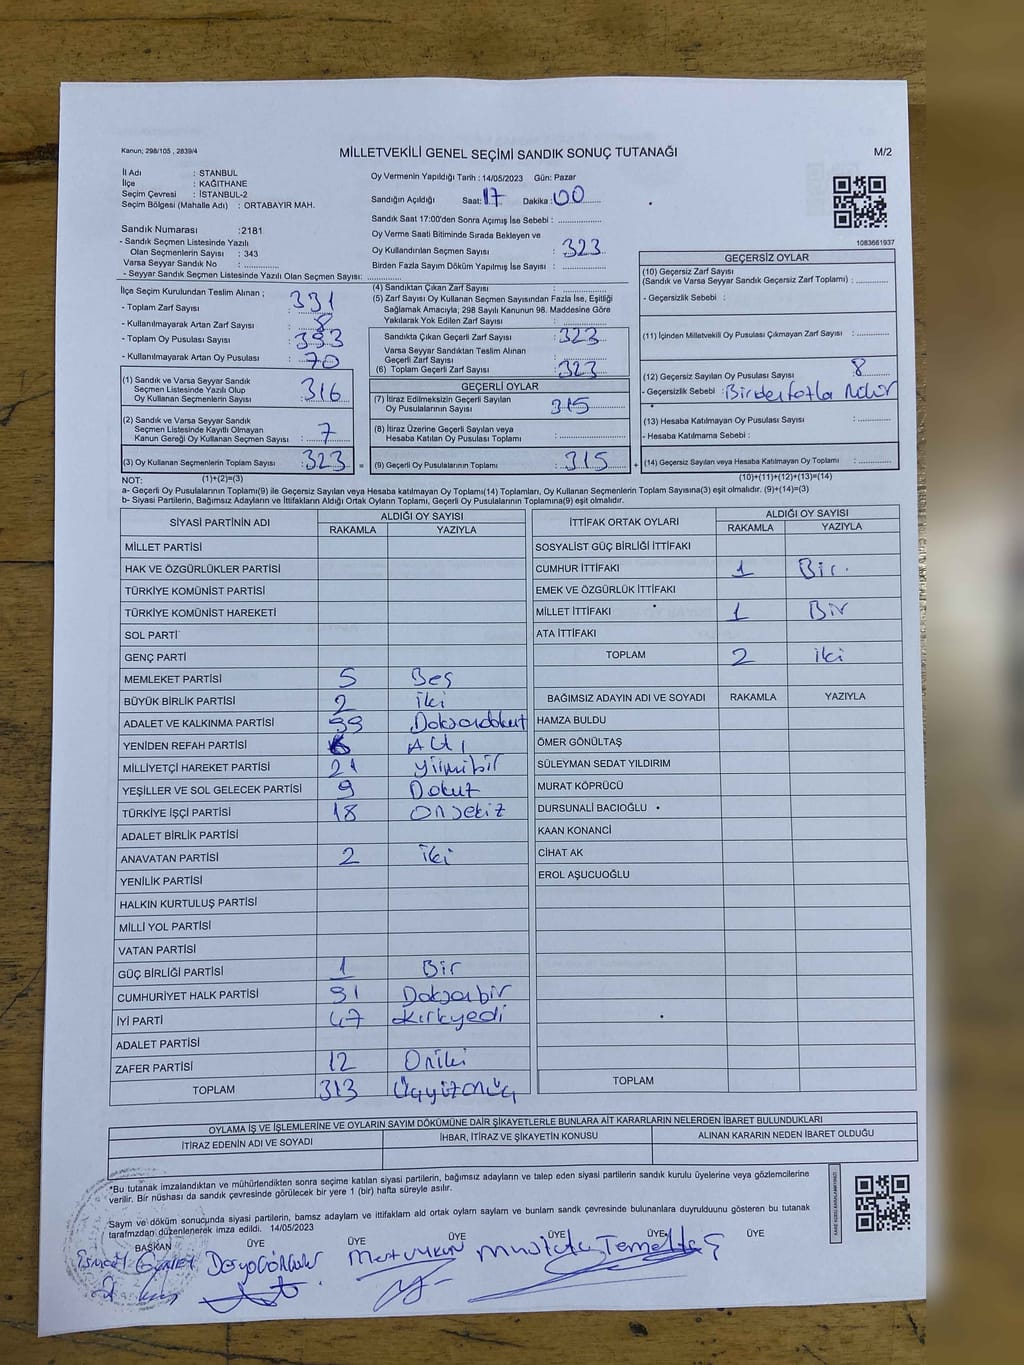 Kanun; 298/105 , 2839/4
MİLLETVEKİLİ GENEL SEÇİMİ SANDIK SONUÇ TUTANAĞI
M/2
İl Adı : STANBUL
İlçe : KAĞITHANE
Seçim Çevresi : İSTANBUL-2
Seçim Bölgesi (Mahalle Adı) : ORTABAYIR MAH.
Sandık Numarası :2181
- Sandık Seçmen Listesinde Yazılı
Olan Seçmenlerin Sayısı : 343
Varsa Seyyar Sandık No :
- Seyyar Sandık Seçmen Listesinde Yazılı Olan Seçmen Sayısı:
Oy Vermenin Yapıldığı Tarih : 14/05/2023 Gün: Pazar
Sandığın Açıldığı Saat: 17 Dakika: 00
Sandık Saat 17:00'den Sonra Açımış İse Sebebi :
Oy Verme Saati Bitiminde Sırada Bekleyen ve
Oy Kullandırılan Seçmen Sayısı : 323
Birden Fazla Sayım Döküm Yapılmış İse Sayısı :
1083661937
İlçe Seçim Kurulundan Teslim Alınan ;
- Toplam Zarf Sayısı : 331
- Kullanılmayarak Artan Zarf Sayısı : 8
- Toplam Oy Pusulası : 393
- Kullanılmayarak Artan Oy Pusulası : 70
(1) Sandık ve Varsa Seyyar Sandık
Seçmen Listesinde Yazılı Olup
Oy Kullanan Seçmenlerin Sayısı : 316
(2) Sandık ve Varsa Seyyar Sandık
Seçmen Listesinde Kayıtlı Olmayan
Kanun Gereği Oy Kullanan Seçmen Sayısı : 7
(3) Oy Kullanan Seçmenlerin Toplam Sayısı : 323 =
(4) Sandıktan Çıkan Zarf Sayısı :
(5) Zarf Sayısı Oy Kullanan Seçmen Sayısından Fazla İse, Eşitliği
Sağlamak Amacıyla; 298 Sayılı Kanunun 98. Maddesine Göre
Yakılarak Yok Edilen Zarf Sayısı :
Sandıkta Çıkan Geçerli Zarf Sayısı : 323
Varsa Seyyar Sandıktan Teslim Alınan
Geçerli Zarf Sayısı :
(6) Toplam Geçerli Zarf Sayısı : 323
GEÇERLİ OYLAR
(7) İtiraz Edilmeksizin Geçerli Sayılan
Oy Pusulalarının Sayısı : 315
(8) İtiraz Üzerine Geçerli Sayılan veya
Hesaba Katılan Oy Pusulası Toplamı :
(9) Geçerli Oy Pusulalarının Toplamı : 315 +
GEÇERSİZ OYLAR
(10) Geçersiz Zarf Sayısı
(Sandık ve Varsa Seyyar Sandık Geçersiz Zarf Toplamı) :
- Geçersizlik Sebebi :
(11) İçinden Milletvekili Oy Pusulası Çıkmayan Zarf Sayısı :
(12) Geçersiz Sayılan Oy Pusulası Sayısı : 8
- Geçersizlik Sebebi : Birden fazla Mühür
(13) Hesaba Katılmayan Oy Pusulası Sayısı :
- Hesaba Katılmama Sebebi :
(14) Geçersiz Sayılan veya Hesaba Katılmayan Oy Toplamı :
NOT: (1)+(2)=(3) (10)+(11)+(12)+(13)=(14)
a- Geçerli Oy Pusulalarının Toplamı(9) ile Geçersiz Sayılan veya Hesaba katılmayan Oy Toplamı(14) Toplamları, Oy Kullanan Seçmenlerin Toplam Sayısına(3) eşit olmalıdır. (9)+(14)=(3)
b- Siyasi Partilerin, Bağımsız Adayların ve İttifakların Aldığı Ortak Oyların Toplamı, Geçerli Oy Pusulalarının Toplamına(9) eşit olmalıdır.
SİYASİ PARTİNİN ADI ALDIĞI OY SAYISI
RAKAMLA YAZIYLA
MİLLET PARTİSİ
HAK VE ÖZGÜRLÜKLER PARTİSİ
TÜRKİYE KOMÜNİST PARTİSİ
TÜRKİYE KOMÜNİST HAREKETİ
SOL PARTİ
GENÇ PARTİ
MEMLEKET PARTİSİ 5 Beş
BÜYÜK BİRLİK PARTİSİ 2 iki
ADALET VE KALKINMA PARTİSİ 99 Doksandokuz
YENİDEN REFAH PARTİSİ 6 Altı
MİLLİYETÇİ HAREKET PARTİSİ 21 yirmibir
YEŞİLLER VE SOL GELECEK PARTİSİ 9 Dokuz
TÜRKİYE İŞÇİ PARTİSİ 18 Onsekiz
ADALET BİRLİK PARTİSİ
ANAVATAN PARTİSİ 2 iki
YENİLİK PARTİSİ
HALKIN KURTULUŞ PARTİSİ
MİLLİ YOL PARTİSİ
VATAN PARTİSİ
GÜÇ BİRLİĞİ PARTİSİ 1 Bir
CUMHURİYET HALK PARTİSİ 91 Doksanbir
İYİ PARTİ 47 Kırkyedi
ADALET PARTİSİ
ZAFER PARTİSİ 12 Oniki
TOPLAM 313 Üçyüzonüç
İTTİFAK ORTAK OYLARI ALDIĞI OY SAYISI
RAKAMLA YAZIYLA
SOSYALİST GÜÇ BİRLİĞİ İTTİFAKI
CUMHUR İTTİFAKI 1 Bir.
EMEK VE ÖZGÜRLÜK İTTİFAKI
MİLLET İTTİFAKI 1 Bir
ATA İTTİFAKI
TOPLAM 2 iki
BAĞIMSIZ ADAYIN ADI VE SOYADI RAKAMLA YAZIYLA
HAMZA BULDU
ÖMER GÖNÜLTAŞ
SÜLEYMAN SEDAT YILDIRIM
MURAT KÖPRÜCÜ
DURSUNALİ BACIOĞLU
KAAN KONANCİ
CİHAT AK
EROL AŞUCUOĞLU
TOPLAM
OYLAMA İŞ VE İŞLEMLERİNE VE OYLARIN SAYIM DÖKÜMÜNE DAİR ŞİKAYETLERLE BUNLARA AİT KARARLARIN NELERDEN İBARET BULUNDUKLARI
İTİRAZ EDENİN ADI VE SOYADI İHBAR, İTİRAZ VE ŞİKAYETİN KONUSU ALINAN KARARIN NEDEN İBARET OLDUĞU
*Bu tutanak imzalandıktan ve mühürlendikten sonra seçime katılan siyasi partilerin, bağımsız adayların ve talep eden siyasi partilerin sandık kurulu üyelerine veya gözlemcilerine
verilir. Bir nüshası da sandık çevresinde görülecek bir yere 1 (bir) hafta süreyle asılır.
Sayım ve döküm sonucunda siyasi partilerin, bamsz adaylam ve ittifaklam ald ortak oylam saylam ve bunlam sandk çevresinde bulunanlara duyruldduunu gösteren bu tutanak
tarafmzdan düzenlenerek imza edildi. 14/05/2023
BAŞKAN ÜYE ÜYE ÜYE ÜYE ÜYE
Mustafa Temeltaş